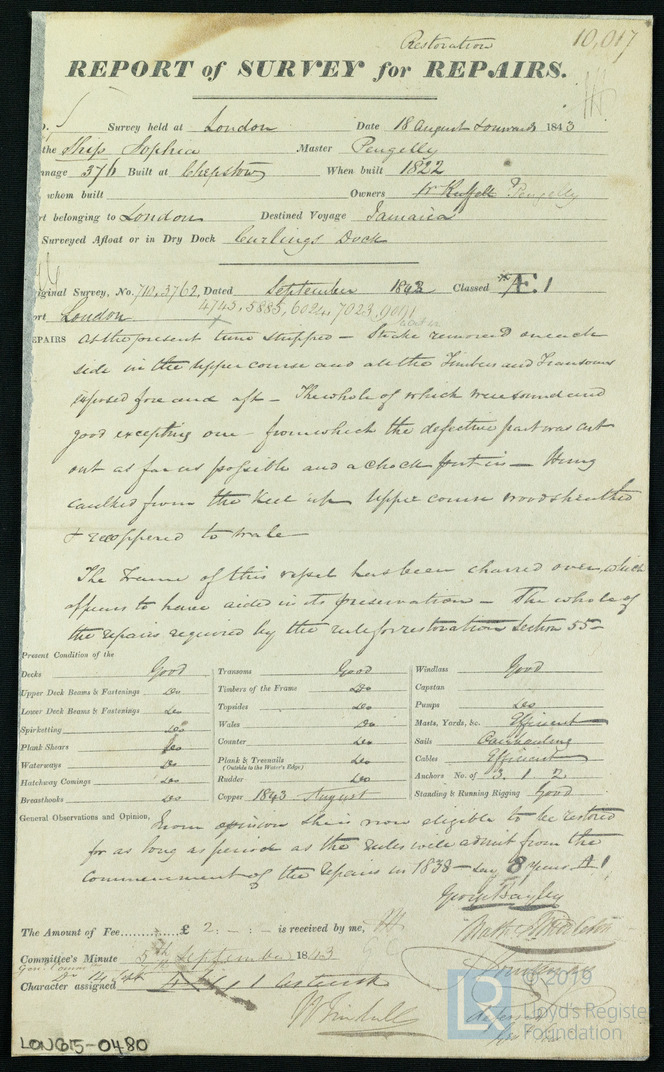 Restoration
10,017
REPORT of SURVEY for REPAIRS.
Survey held at London Date 18 August & onwards 1843
the Ship Sophia Master Pengelly
nnage 376 Built at Chepstow When built 1822
whom built Owners Pengelly
rt belonging to London Destined Voyage Jamaica
Surveyed Afloat or in Dry Dock Curlings Dock
iginal Survey, No. 710, 3762, Dated September 1842 Classed *Æ. 1
4743, 5885, 6024, 7023, 9091
ort London
EPAIRS At the present time stripped – Strake removed on each
side in the upper course and all the Timbers and Transoms
exposed fore and aft – The whole of which were sound and
good excepting one – from which the defective part was cut
out as far as possible and a chock put in –
caulked from the Keel up upper course woodsheathed
& recoppered to wale
The Frame of this vessel has been charred over, which
appears to have aided in its preservation – The whole of
the repairs required by the rule for restoration Section 55 –
Present Condition of the
Decks Good
Upper Deck Beams & Fastenings Do
Lower Deck Beams & Fastenings Do
Spirketting Do
Plank Shears Do
Waterways Do
Hatchway Comings Do
Breasthooks Do
Transoms Good
Timbers of the Frame Do
Topsides Do
Wales Do
Counter Do
Plank & Treenails Do
(Outside to the Water's Edge)
Rudder Do
Copper 1843 August
Windlass Good
Capstan
Pumps Do
Masts, Yards, &c. Efficient
Sails Overhauling
Cables Efficient
Anchors No. of 3. 1. 2
Standing & Running Rigging Good
General Observations and Opinion, opinion she is now eligible to be restored
for as long a period as the rules will admit from the
commencement of the repairs in 1838 – say 8 years A 1
George Bayley
The Amount of Fee £ 2: – : – is received by me,
Committee's Minute 5th September 1843
14 Sept
Character assigned 1 Asterisk
© 2019
LR
Lloyd's Register
Foundation
LON615-0480